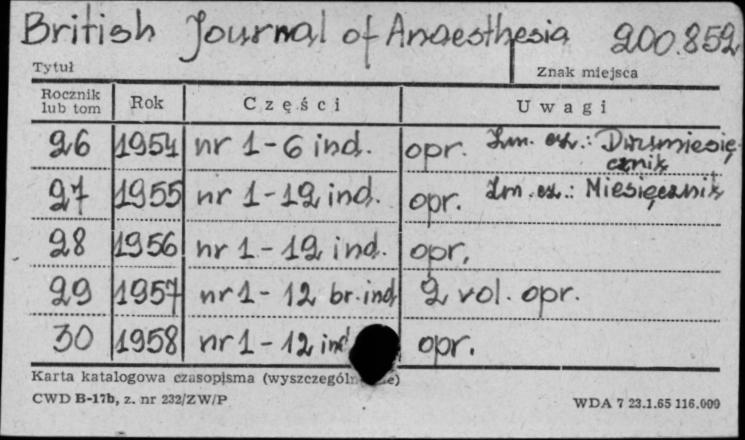 British Journal of Anaesthesia 200.852
Tytuł Znak miejsca
Rocznik lub tom Rok Części Uwagi
26 1954 nr 1-6 ind. opr. Zm. cz.: Dwumiesięcznik
27 1955 nr 1-12 ind. opr. Zm. cz.: Miesięcznik
28 1956 nr 1-12 ind. opr.
29 1957 nr 1-12 br. ind 2 vol. opr.
30 1958 nr 1-12 ind opr.
Karta katalogowa czasopisma
CWD B-17b, z. nr 232/ZW/P WDA 7 23.1.65 116.000